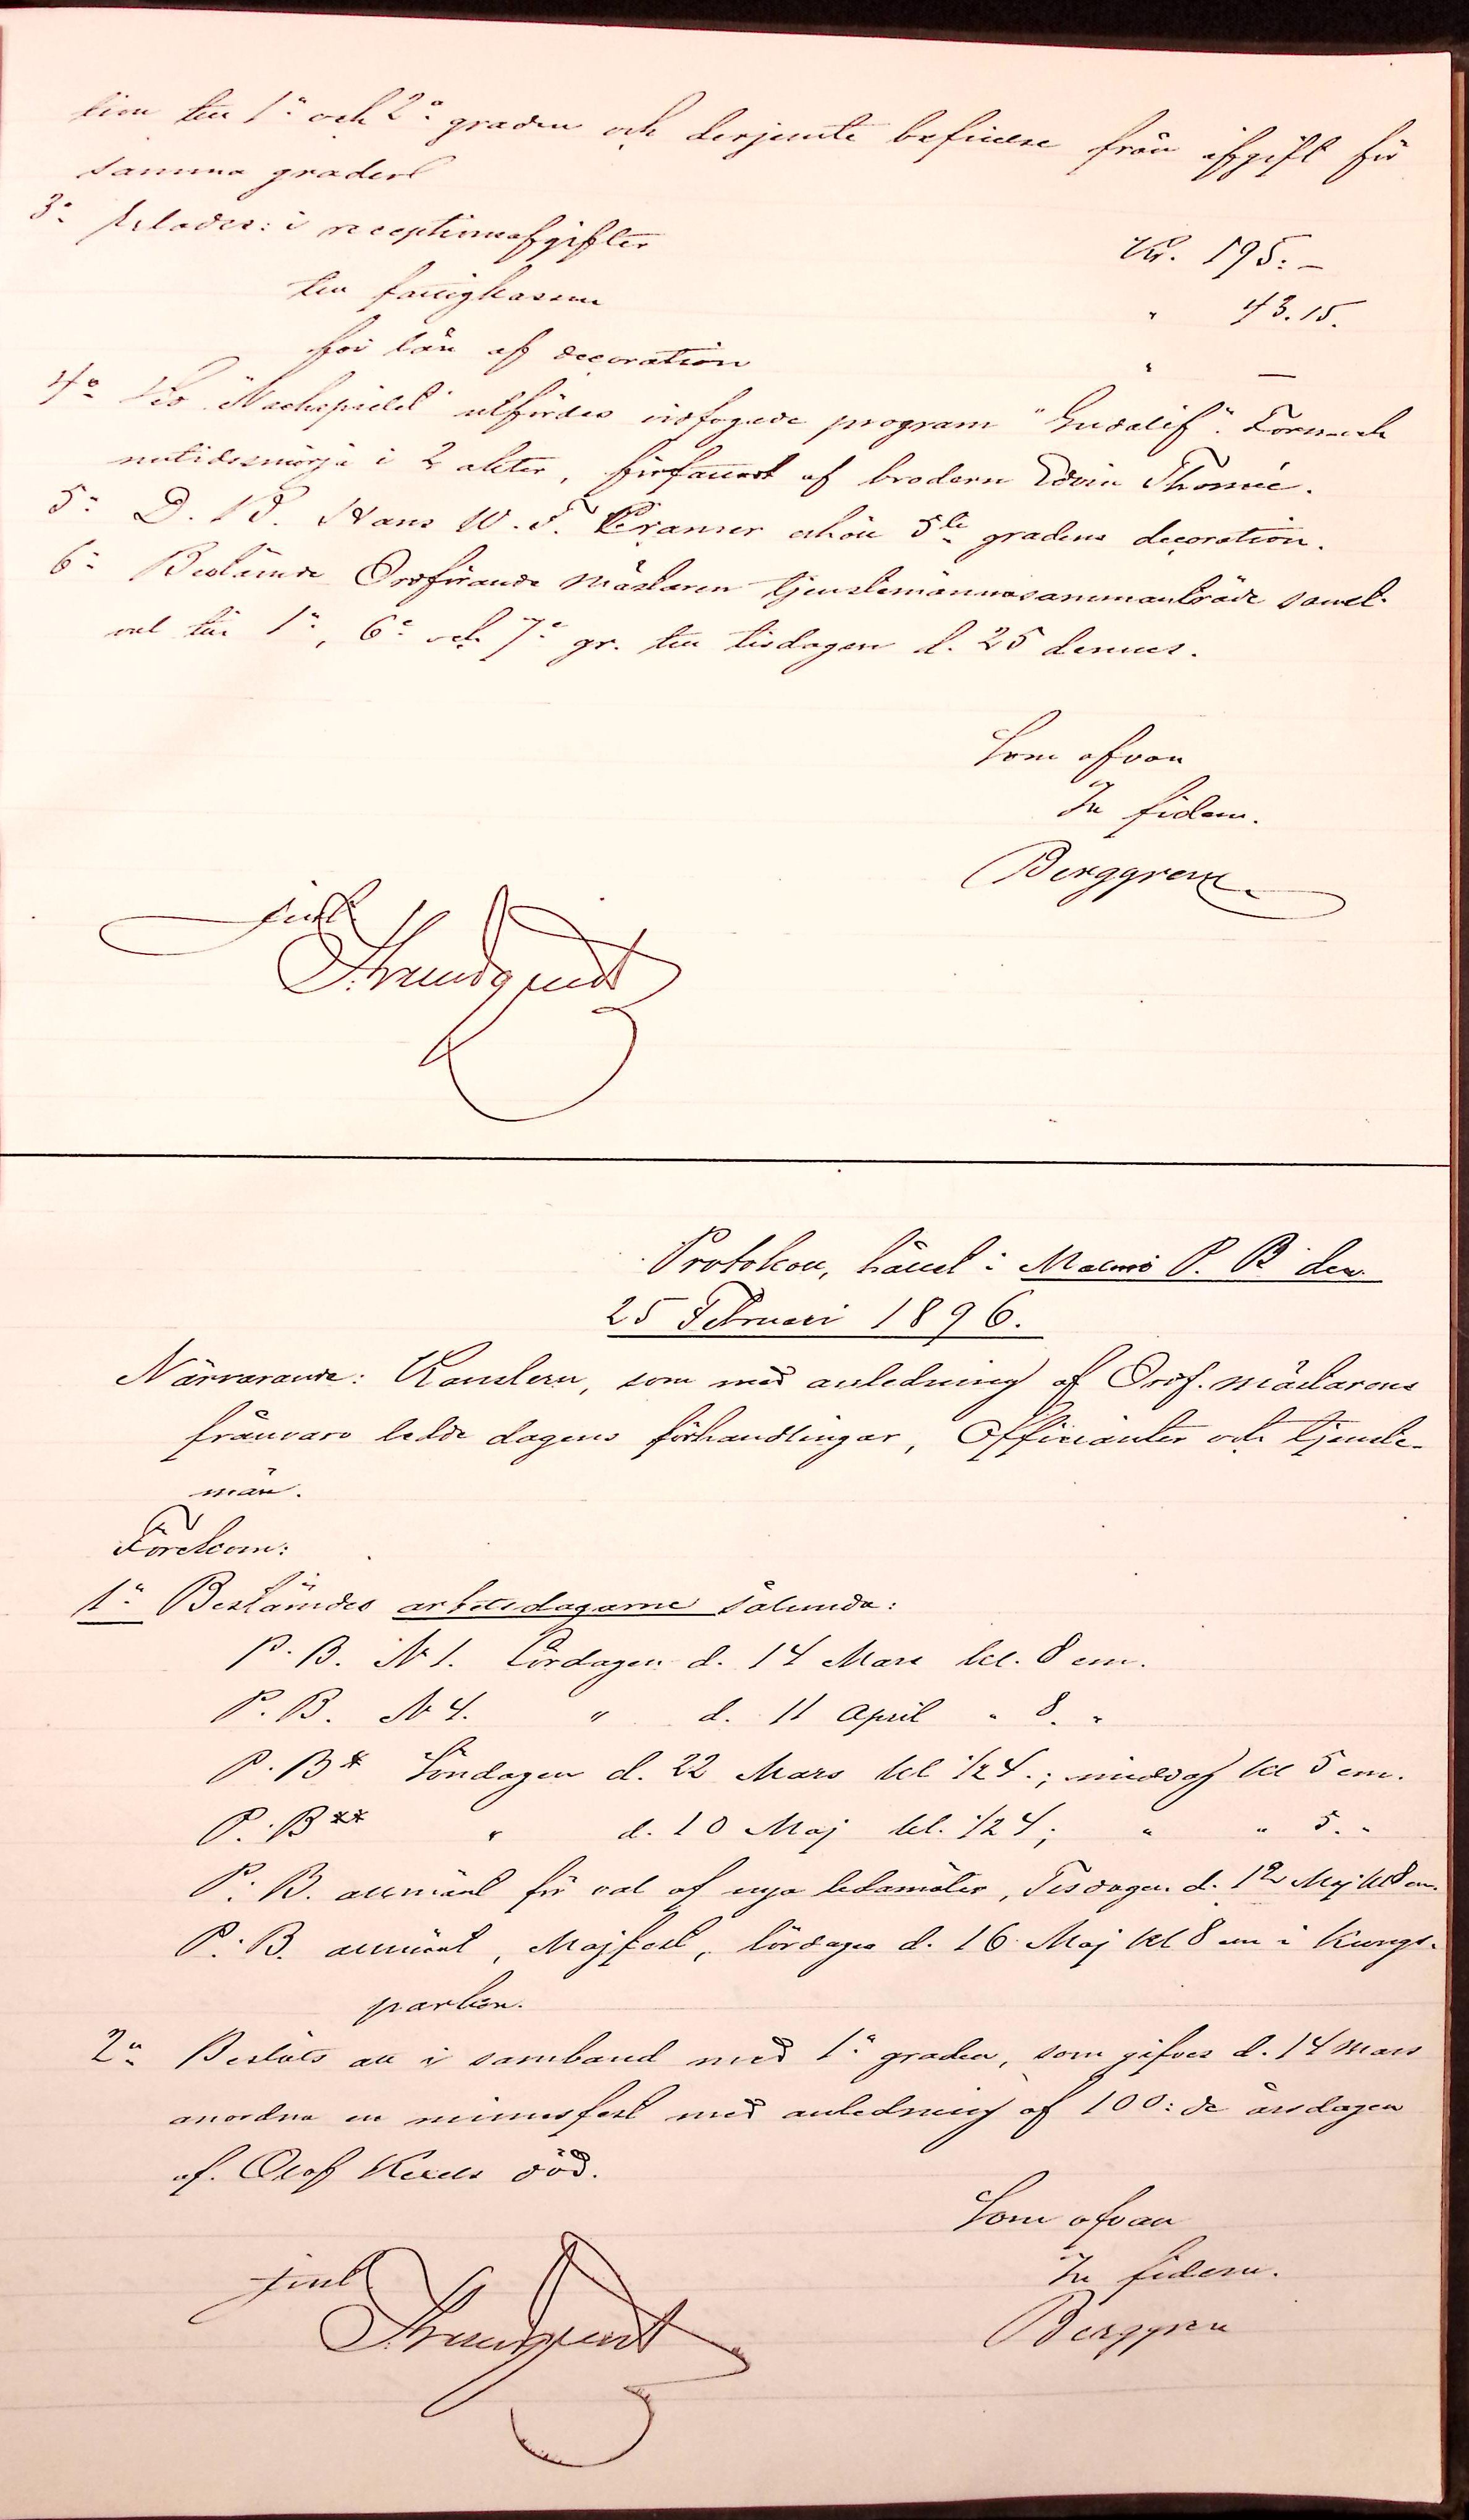 tion till 1a och 2a graden och derjemte befrielse från afgift för
samma grader.
3o Influto: i receptionsafgifter Kr. 195: –
till fattigkassan " 43.15.
för lån af decoration " —
4o Vid "Nachspielet" utfördes visfogade program "Gudalif". Fornoch
nutidsmörja i 2 akter, författad af brodern Edvin Thomée.
5o D. V. Hans W. F. Cramer erhöll 5te gradens decoration.
6o Bestämde Ordförande mästaren tjenstemannasammanträde samt
val till 1a, 6e och 7e gr. till tisdagen d. 25 dennes.
Som ofvan
In fidem.
Berggren
just.
Strandquist
Protokoll, hållet i Malmö P. B den
25 Februari 1896.
Närvarande: Kanslern, som med anledning af Ordf. mästarens
frånvaro ledde dagens förhandlingar, Officianter och tjenste-
män.
Förekom:
1o Bestämdes arbetsdagarne sålunda:
P. B. No 1. Lördagen d. 14 Mars kl. 8 em.
P. B. No 4. " d. 11 April " 8. "
P. B* Söndagen d. 22 Mars kl 1/2 4.; middag kl 5 em.
P. B** " d. 10 Maj kl. 1/2 4; " " 5. "
P. B. allmänt för val af nya ledamöter, Tisdagen d. 12 Maj kl 8 em.
P. B. allmänt, Majfest, lördagen d. 16 Maj kl 8 em i Kungs-
parken.
2o Beslöts att i samband med 1a graden, som gifves d. 14 Mars
anordna en minnesfest med anledning af 100:de årsdagen
af Olof Kexels död.
Som ofvan
In fidem.
Berggren
just
Strandquist